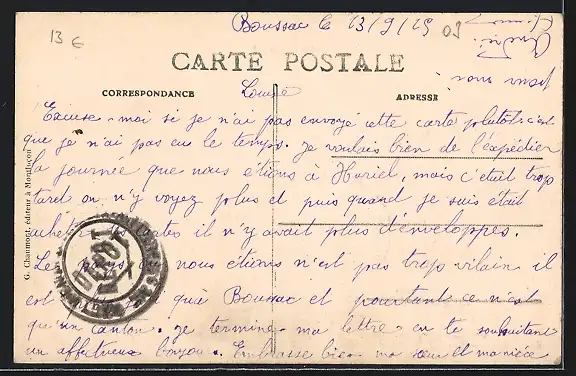 13 €
Boussac le 13/9/29
09
CARTE POSTALE
CORRESPONDANCE
ADRESSE
Louise
Excuse-moi si je n'ai pas envoyé cette carte plutôt c'est
que je n'ai pas eu le temps. Je voulais bien de l'expédier
la journée que nous étions à Huriel, mais c'était trop
tard on n'y voyez plus et puis quand je suis était
acheter les cartes il n'y avait plus d'enveloppes.
Le pays où nous étions n'est pas trop vilain il
est que Boussac et pourtant ce n'est
qu'un canton. Je termine ma lettre en te souhaitant
un affectueux bonjour. Embrasse bien ma sœur et ma nièce
G. Chaumont, éditeur à Montluçon